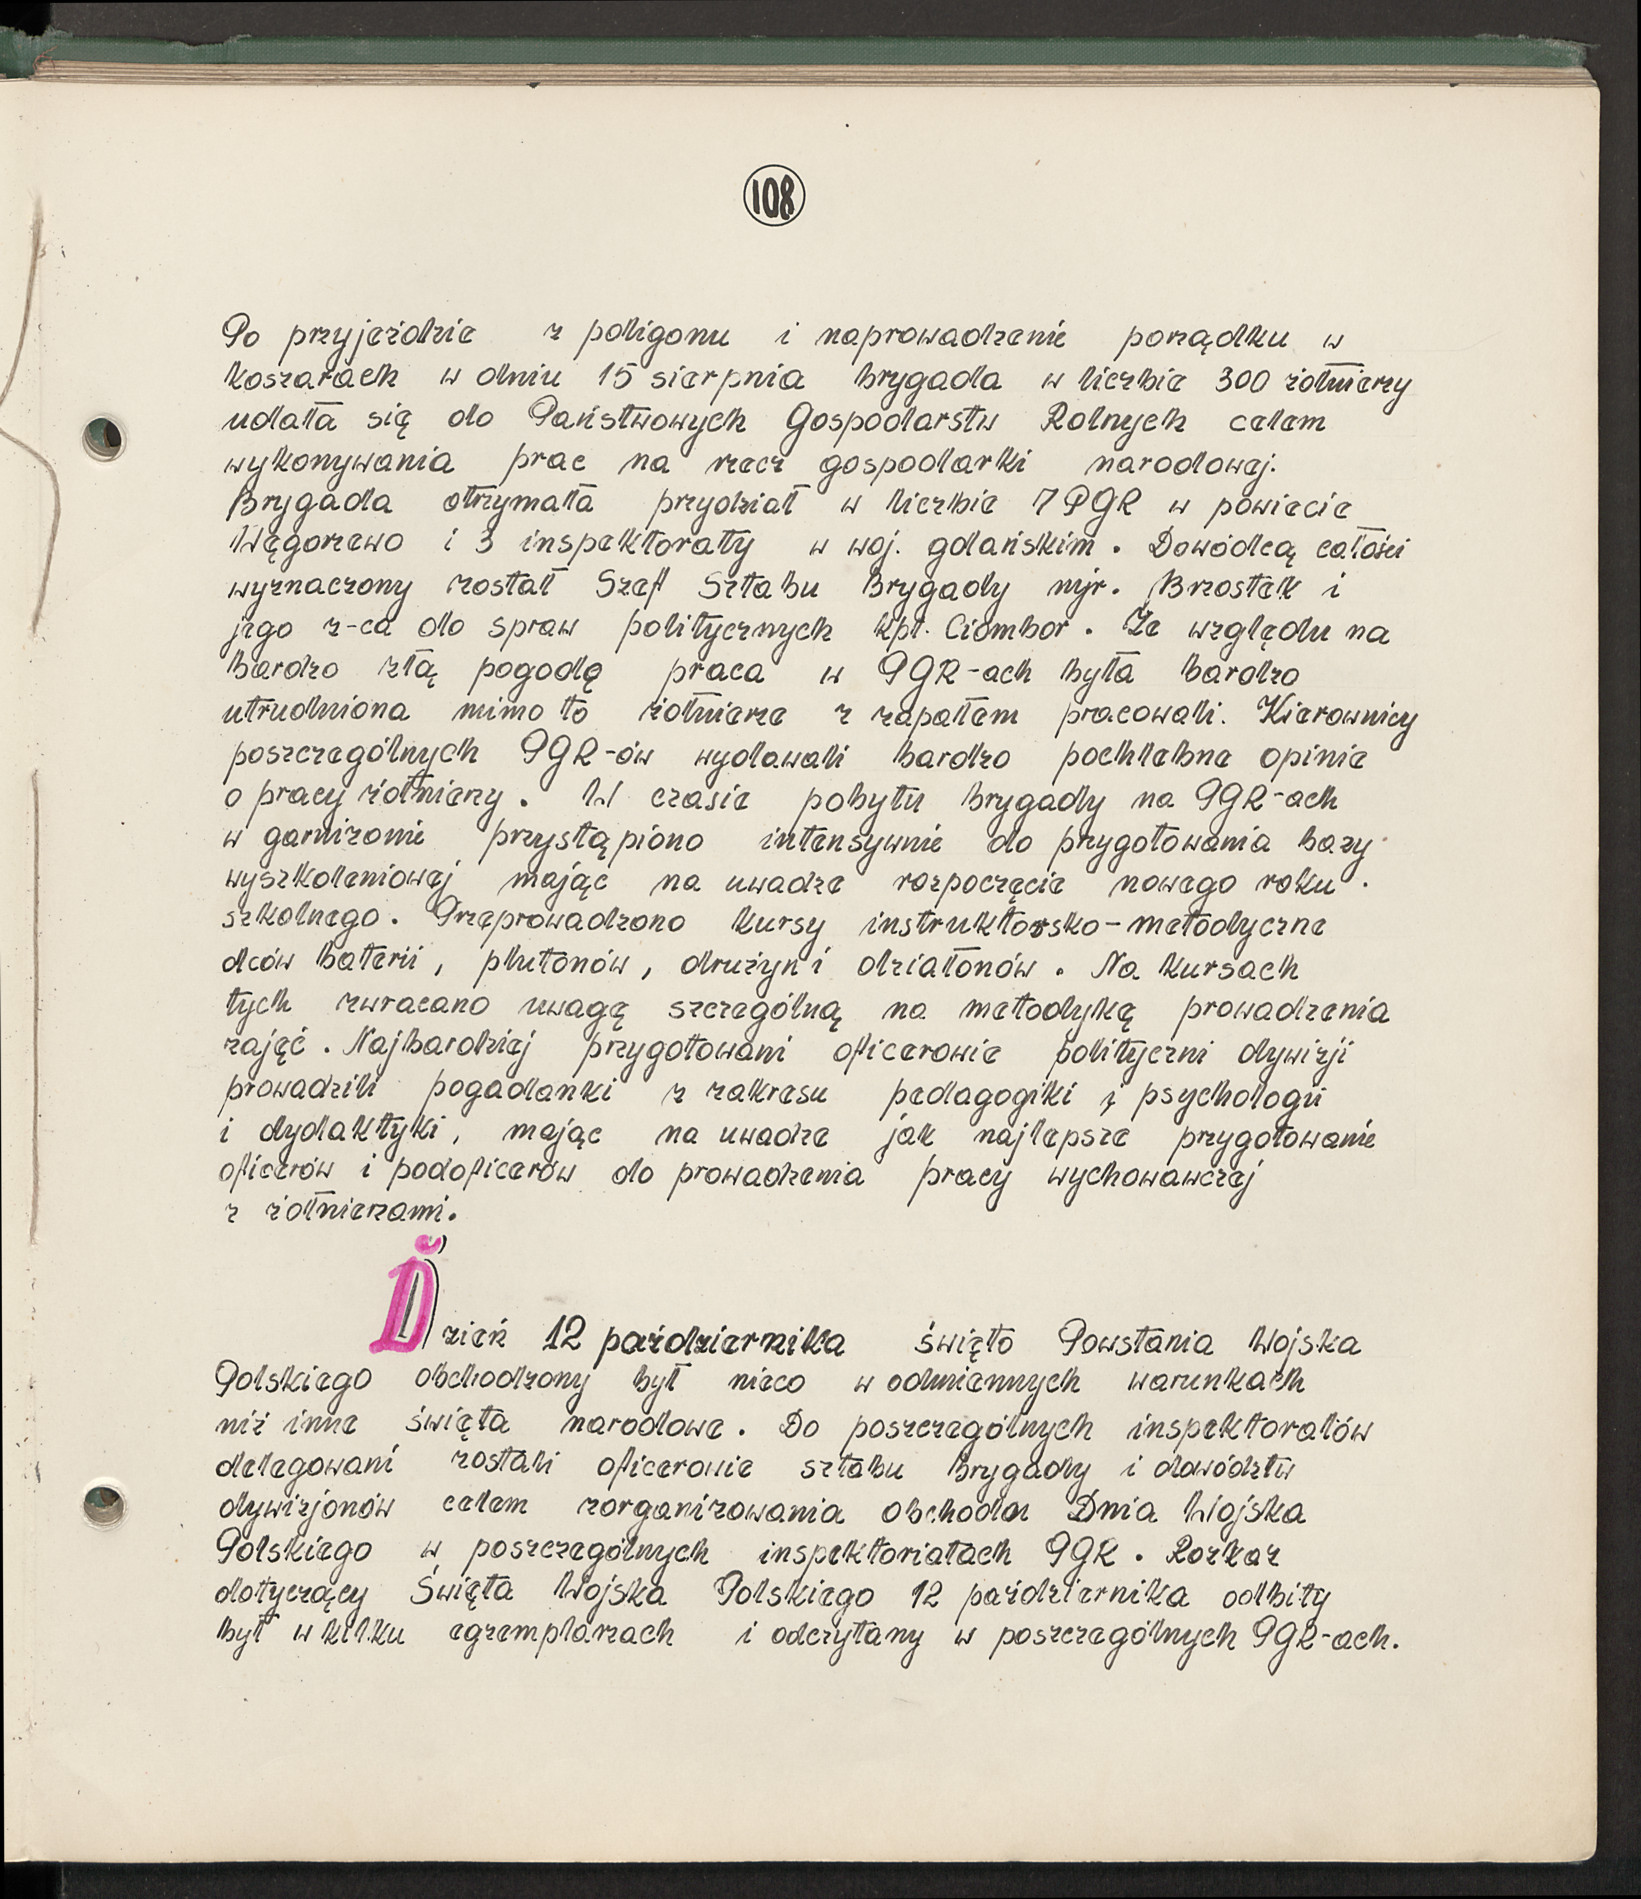 108
Po przyjeździe z poligonu i naprowadzenie porządku w
koszarach w dniu 15 sierpnia brygada w liczbie 300 żołnierzy
udała się do Państwowych Gospodarstw Rolnych celem
wykonywania prac na rzecz gospodarki narodowej.
Brygada otrzymała przydział w liczbie 7 PGR w powiecie
Węgorzewo i 3 inspektoraty w woj. gdańskim. Dowódcą całości
wyznaczony został Szef Sztabu Brygady mjr. Brzostek i
jego z-ca do spraw politycznych kpt. Ciombor. Ze względu na
bardzo złą pogodę praca w PGR-ach była bardzo
utrudniona mimo to żołnierze z zapałem pracowali. Kierownicy
poszczególnych PGR-ów wydawali bardzo pochlebne opinie
o pracy żołnierzy. W czasie pobytu brygady na PGR-ach
w garnizonie przystąpiono intensywnie do przygotowania bazy
wyszkoleniowej mając na uwadze rozpoczęcie nowego roku
szkolnego. Przeprowadzono kursy instruktorsko-metodyczne
dców baterii, plutonów, drużyn i działonów. Na kursach
tych zwracano uwagę szczególną na metodykę prowadzenia
zajęć. Najbardziej przygotowani oficerowie polityczni dywizji
prowadzili pogadanki z zakresu pedagogiki i psychologii
i dydaktyki, mając na uwadze jak najlepsze przygotowanie
oficerów i podoficerów do prowadzenia pracy wychowawczej
z żołnierzami.
Dzień 12 października święto Powstania Wojska
Polskiego obchodzony był nieco w odmiennych warunkach
niż inne święta narodowe. Do poszczególnych inspektoratów
delegowani zostali oficerowie sztabu brygady i dowództw
dywizjonów celem zorganizowania obchodu Dnia Wojska
Polskiego w poszczególnych inspektoriatach PGR. Rozkaz
dotyczący Święta Wojska Polskiego 12 października odbity
był w kilku egzemplarzach i odczytany w poszczególnych PGR-ach.